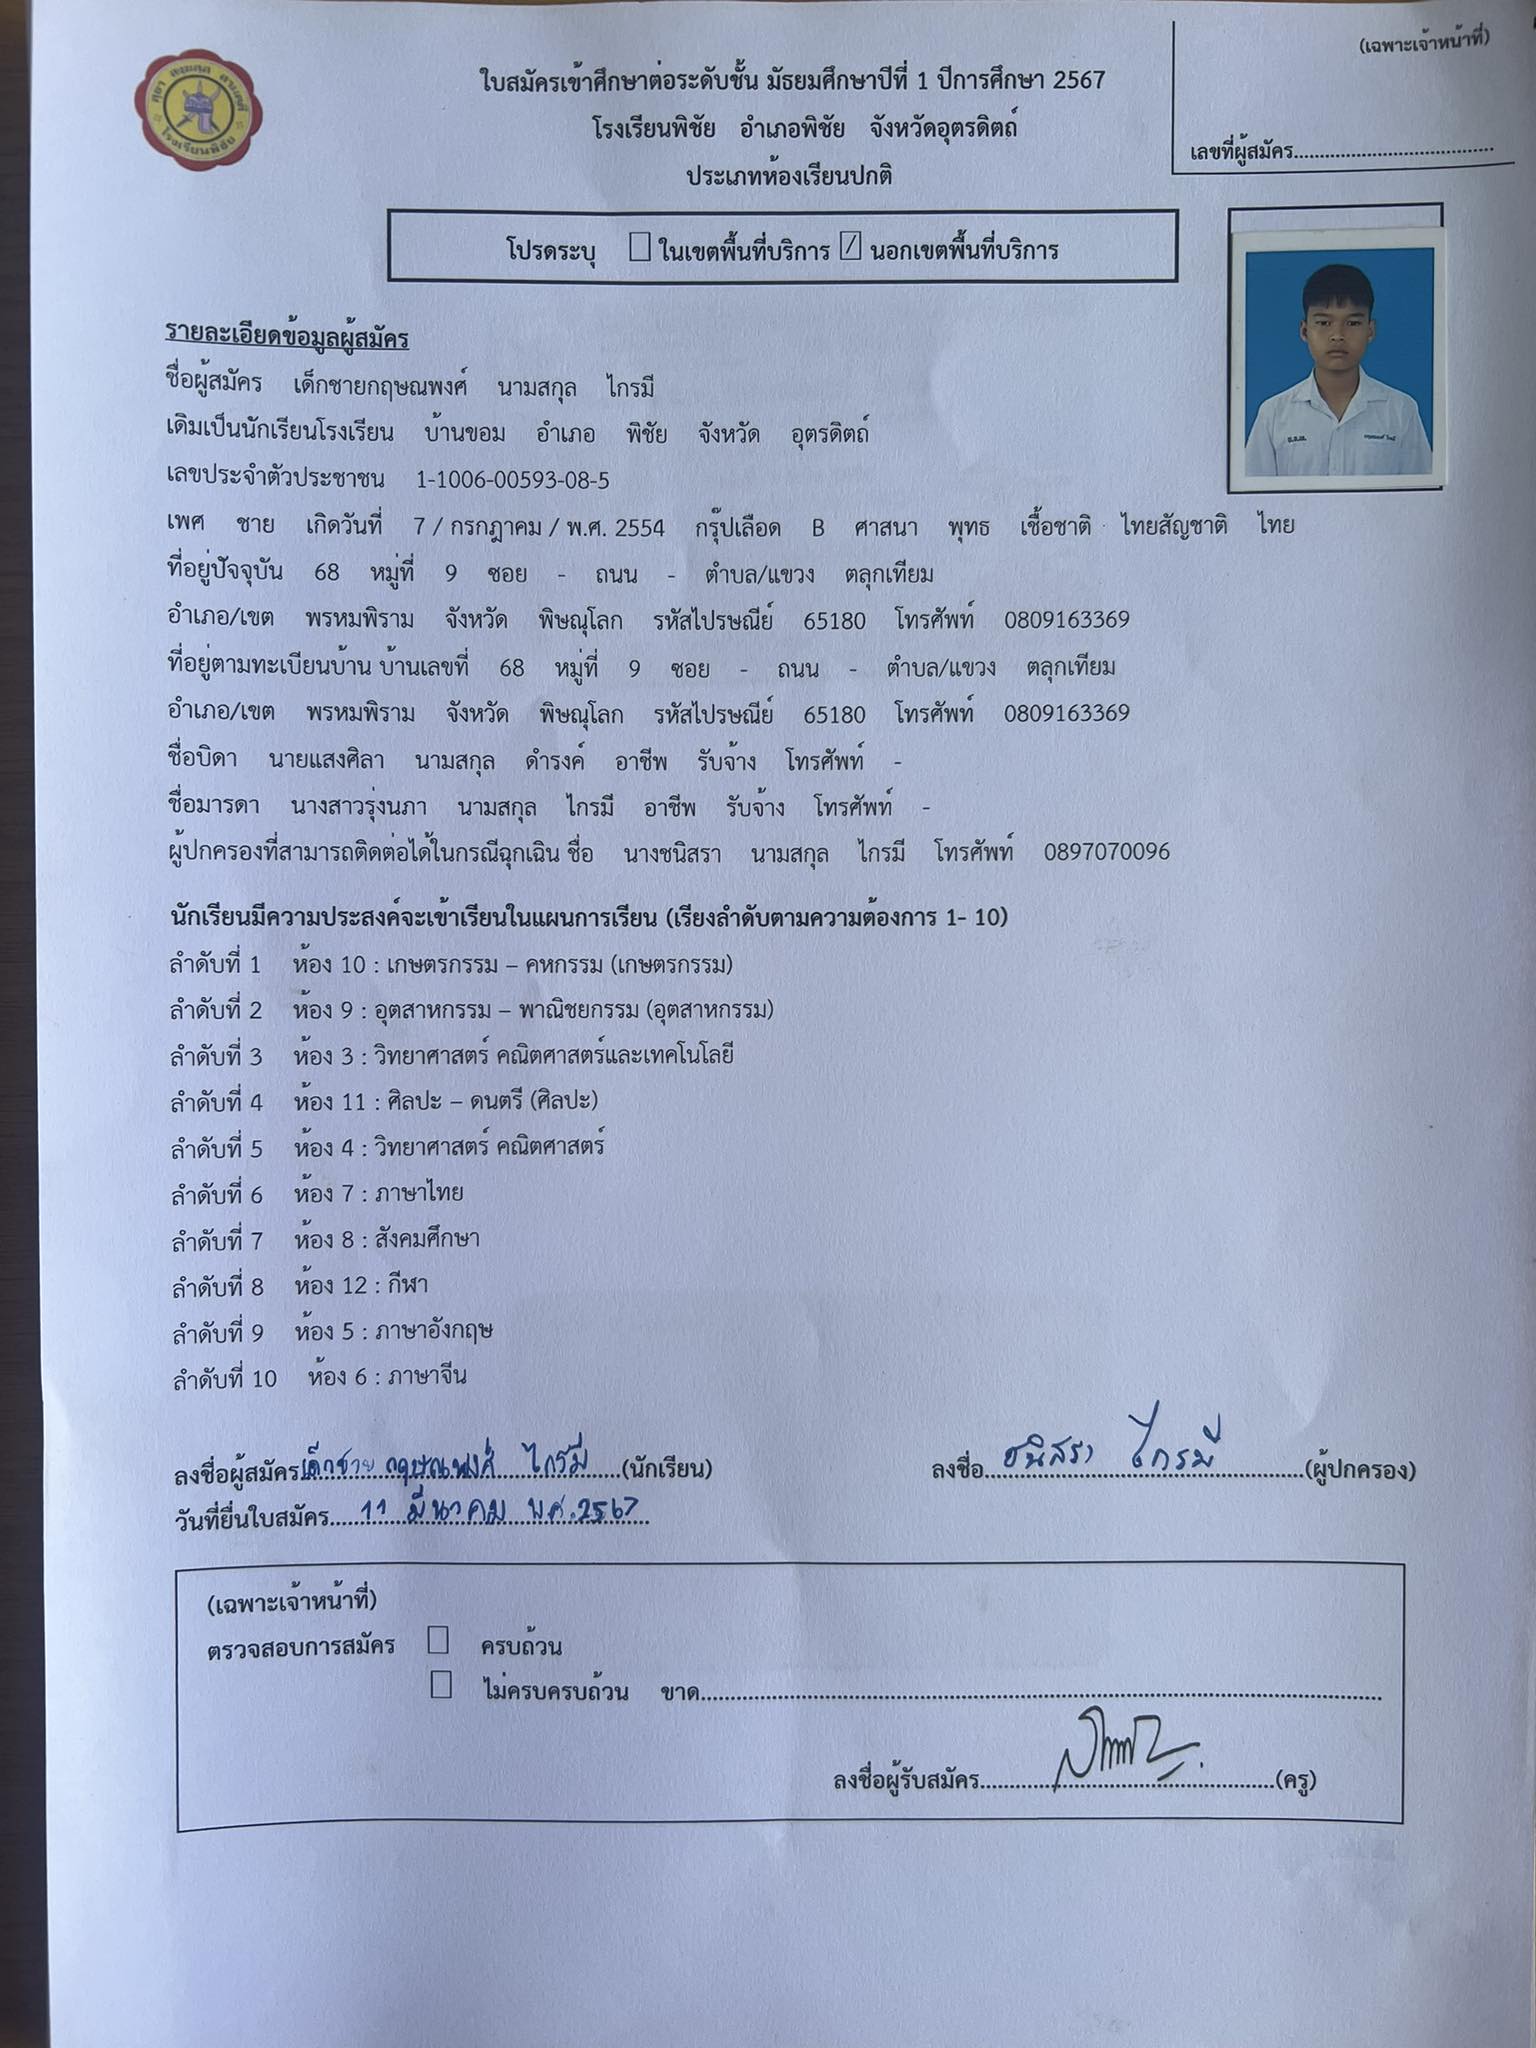 (เฉพาะเจ้าหน้าที่)
ใบสมัครเข้าศึกษาต่อระดับชั้น มัธยมศึกษาปีที่ 1 ปีการศึกษา 2567
โรงเรียนพิชัย อำเภอพิชัย จังหวัดอุตรดิตถ์
เลขที่ผู้สมัคร
ประเภทห้องเรียนปกติ
โรงเรียนพิชัย
โปรดระบุ ☐ ในเขตพื้นที่บริการ ☑ นอกเขตพื้นที่บริการ
รายละเอียดข้อมูลผู้สมัคร
ชื่อผู้สมัคร เด็กชายกฤษณพงศ์ นามสกุล ไกรมี
เดิมเป็นนักเรียนโรงเรียน บ้านขอม อำเภอ พิชัย จังหวัด อุตรดิตถ์
เลขประจำตัวประชาชน 1-1006-00593-08-5
เพศ ชาย เกิดวันที่ 7 / กรกฎาคม / พ.ศ. 2554 กรุ๊ปเลือด B ศาสนา พุทธ เชื้อชาติ ไทยสัญชาติ ไทย
ที่อยู่ปัจจุบัน 68 หมู่ที่ 9 ซอย - ถนน - ตำบล/แขวง ตลุกเทียม
อำเภอ/เขต พรหมพิราม จังหวัด พิษณุโลก รหัสไปรษณีย์ 65180 โทรศัพท์ 0809163369
ที่อยู่ตามทะเบียนบ้าน บ้านเลขที่ 68 หมู่ที่ 9 ซอย - ถนน - ตำบล/แขวง ตลุกเทียม
อำเภอ/เขต พรหมพิราม จังหวัด พิษณุโลก รหัสไปรษณีย์ 65180 โทรศัพท์ 0809163369
ชื่อบิดา นายแสงศิลา นามสกุล ดำรงค์ อาชีพ รับจ้าง โทรศัพท์ -
ชื่อมารดา นางสาวรุ่งนภา นามสกุล ไกรมี อาชีพ รับจ้าง โทรศัพท์ -
ผู้ปกครองที่สามารถติดต่อได้ในกรณีฉุกเฉิน ชื่อ นางชนิสรา นามสกุล ไกรมี โทรศัพท์ 0897070096
นักเรียนมีความประสงค์จะเข้าเรียนในแผนการเรียน (เรียงลำดับตามความต้องการ 1- 10)
ลำดับที่ 1 ห้อง 10 : เกษตรกรรม – คหกรรม (เกษตรกรรม)
ลำดับที่ 2 ห้อง 9 : อุตสาหกรรม – พาณิชยกรรม (อุตสาหกรรม)
ลำดับที่ 3 ห้อง 3 : วิทยาศาสตร์ คณิตศาสตร์และเทคโนโลยี
ลำดับที่ 4 ห้อง 11 : ศิลปะ – ดนตรี (ศิลปะ)
ลำดับที่ 5 ห้อง 4 : วิทยาศาสตร์ คณิตศาสตร์
ลำดับที่ 6 ห้อง 7 : ภาษาไทย
ลำดับที่ 7 ห้อง 8 : สังคมศึกษา
ลำดับที่ 8 ห้อง 12 : กีฬา
ลำดับที่ 9 ห้อง 5 : ภาษาอังกฤษ
ลำดับที่ 10 ห้อง 6 : ภาษาจีน
ลงชื่อผู้สมัคร เด็กชาย กฤษณพงศ์ ไกรมี (นักเรียน) ลงชื่อ ชนิสรา ไกรมี (ผู้ปกครอง)
วันที่ยื่นใบสมัคร 11 มีนาคม พศ.2567
(เฉพาะเจ้าหน้าที่)
ตรวจสอบการสมัคร ☐ ครบถ้วน
☐ ไม่ครบครบถ้วน ขาด
ลงชื่อผู้รับสมัคร (ครู)